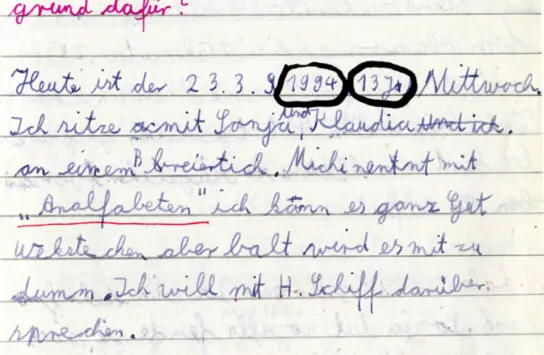 grund dafür?
Heute ist der 23.3.9 1994 13J. Mittwoch.
Ich sitze mit Sonja und Klaudia und ich.
an einem Breiertich. Michi nennt mit
"Analfabeten" ich kann es ganz Gut
wekste chen aber balt wird es mit zu
dumm. Ich will mit H. Schiff darüber
sprechen.